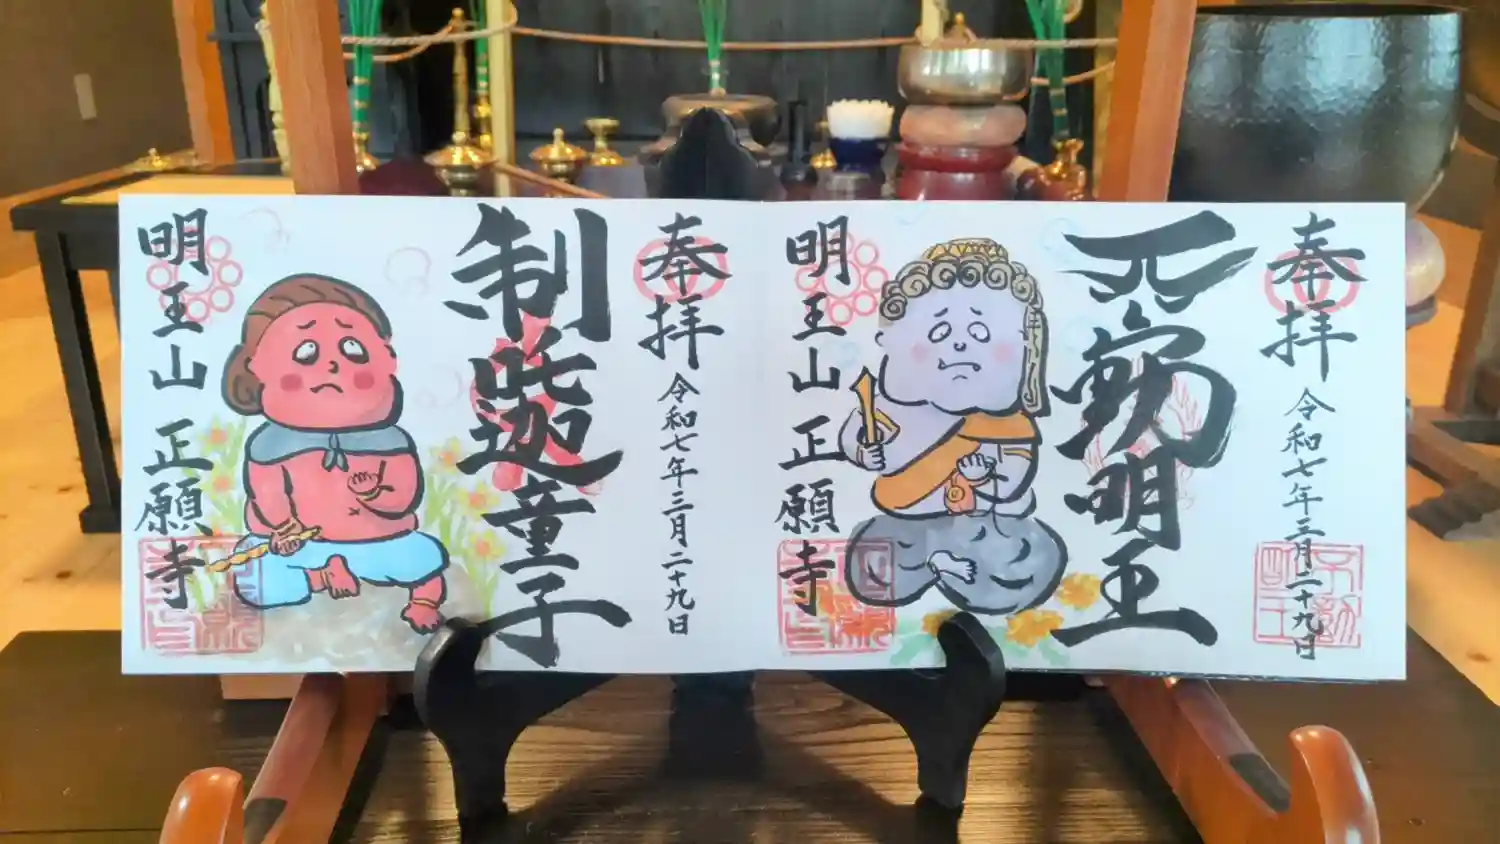 奉拝
令和七年三月二十九日
不動明王
明王山正願寺
奉拝
令和七年三月二十九日
制吒迦童子
明王山正願寺